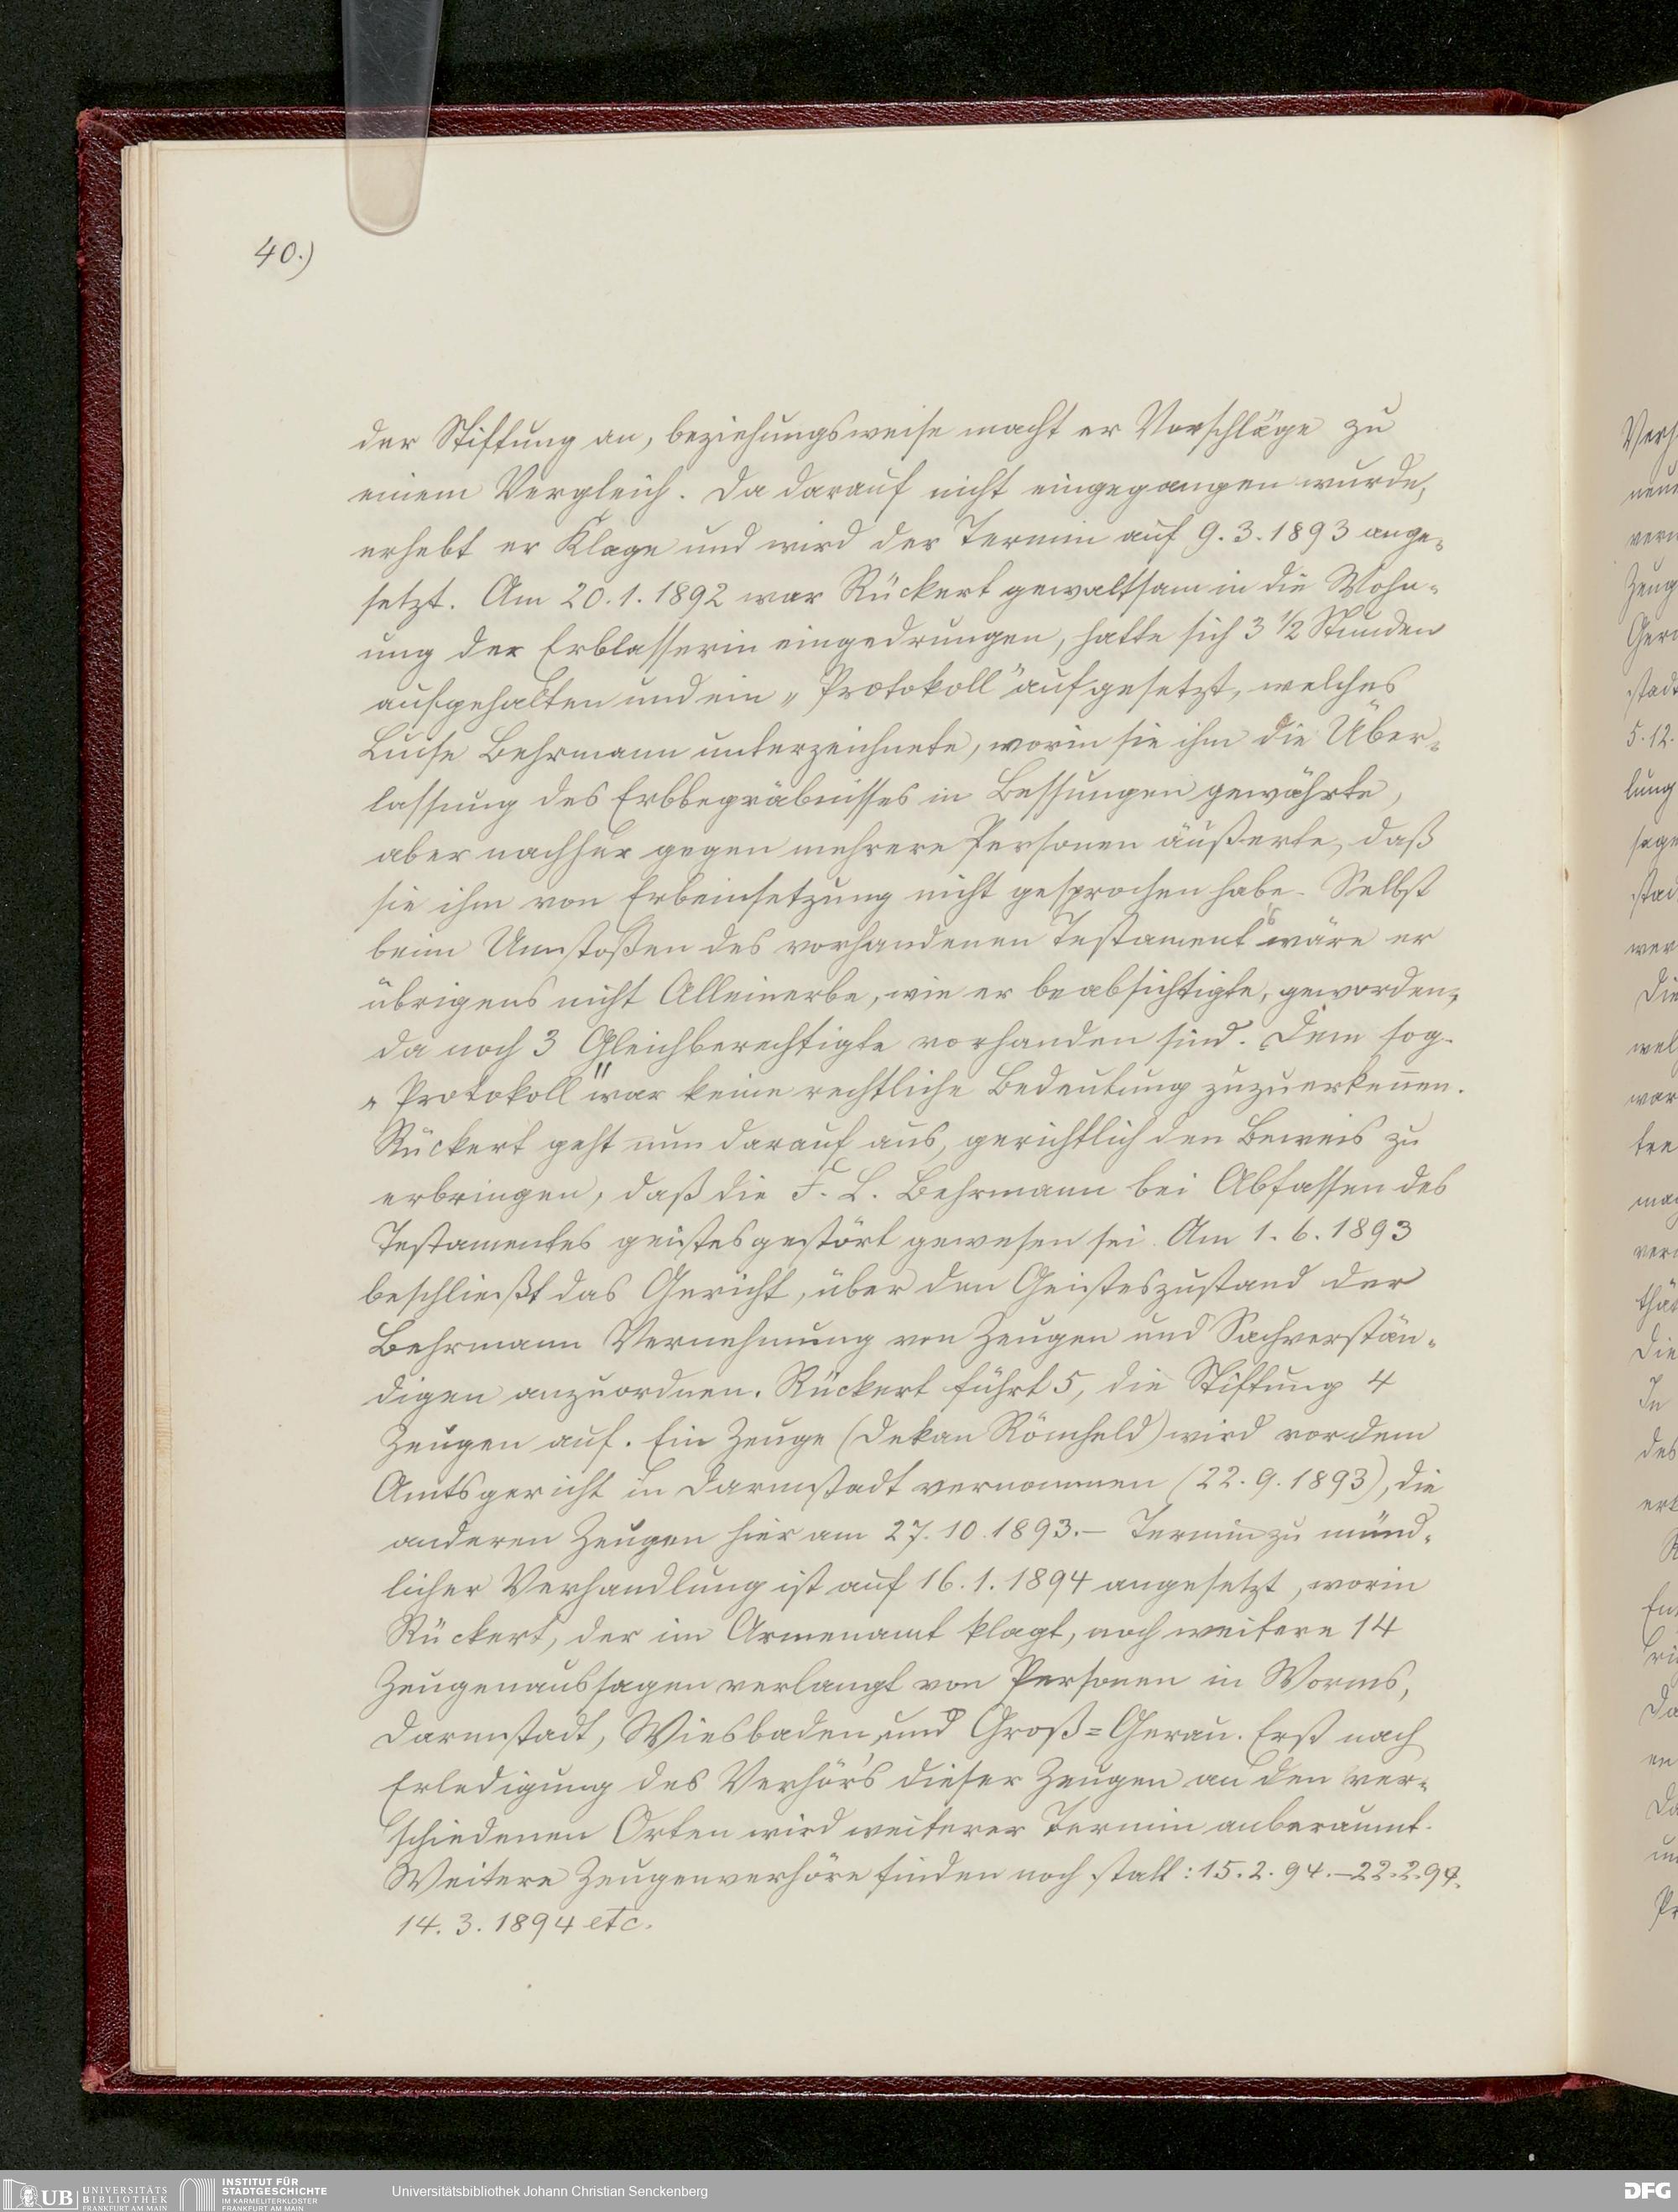 40.)
der Stiftung an, beziehungsweise macht er Vorschläge zu
einem Vergleich. Da darauf nicht eingegangen wurde,
erhebt er Klage und wird der Termin auf 9. 3. 1893 ange-
setzt. Am 20. 1. 1892 war Rückert gewaltsam in die Wohn-
ung der Erblasserin eingedrungen, hatte sich 3 1/2 Stunden
aufgehalten und ein „Protokoll" aufgesetzt, welches
Luise Behrmann unterzeichnete, worin sie ihm die Über-
lassung des Erbbegräbnisses in Bessungen gewährte,
aber nachher gegen mehrere Personen äußerte, daß
sie ihm von Erbeinsetzung nicht gesprochen habe. Selbst
beim Umstoßen des vorhandenen Testaments wäre er
übrigens nicht Alleinerbe, wie er beabsichtigte, geworden,
da noch 3 Gleichberechtigte vorhanden sind. Dem sog.
„Protokoll" war keine rechtliche Bedeutung zuzuerkennen.
Rückert geht nun darauf aus, gerichtlich den Beweis zu
erbringen, daß die F. L. Behrmann bei Abfassen des
Testamentes geistesgestört gewesen sei. Am 1. 6. 1893
beschließt das Gericht, über den Geisteszustand der
Behrmann Vernehmung von Zeugen und Sachverstän-
digen anzuordnen. Rückert führt 5, die Stiftung 4
Zeugen auf. Ein Zeuge (Dekan Römheld) wird vor dem
Amtsgericht in Darmstadt vernommen (22. 9. 1893), die
anderen Zeugen hier am 27. 10. 1893. – Termin zu münd-
licher Verhandlung ist auf 16. 1. 1894 angesetzt, worin
Rückert, der im Armenamt klagt, noch weitere 14
Zeugenaussagen verlangt von Personen in Worms,
Darmstadt, Wiesbaden und Groß=Gerau. Erst nach
Erledigung des Verhörs dieser Zeugen an den ver-
schiedenen Orten wird weiterer Termin anberaumt.
Weitere Zeugenverhöre finden noch statt: 15. 2. 94. – 22. 2. 94.
14. 3. 1894 etc.
UB UNIVERSITÄTS BIBLIOTHEK FRANKFURT AM MAIN
INSTITUT FÜR STADTGESCHICHTE IM KARMELITERKLOSTER FRANKFURT AM MAIN
Universitätsbibliothek Johann Christian Senckenberg
DFG